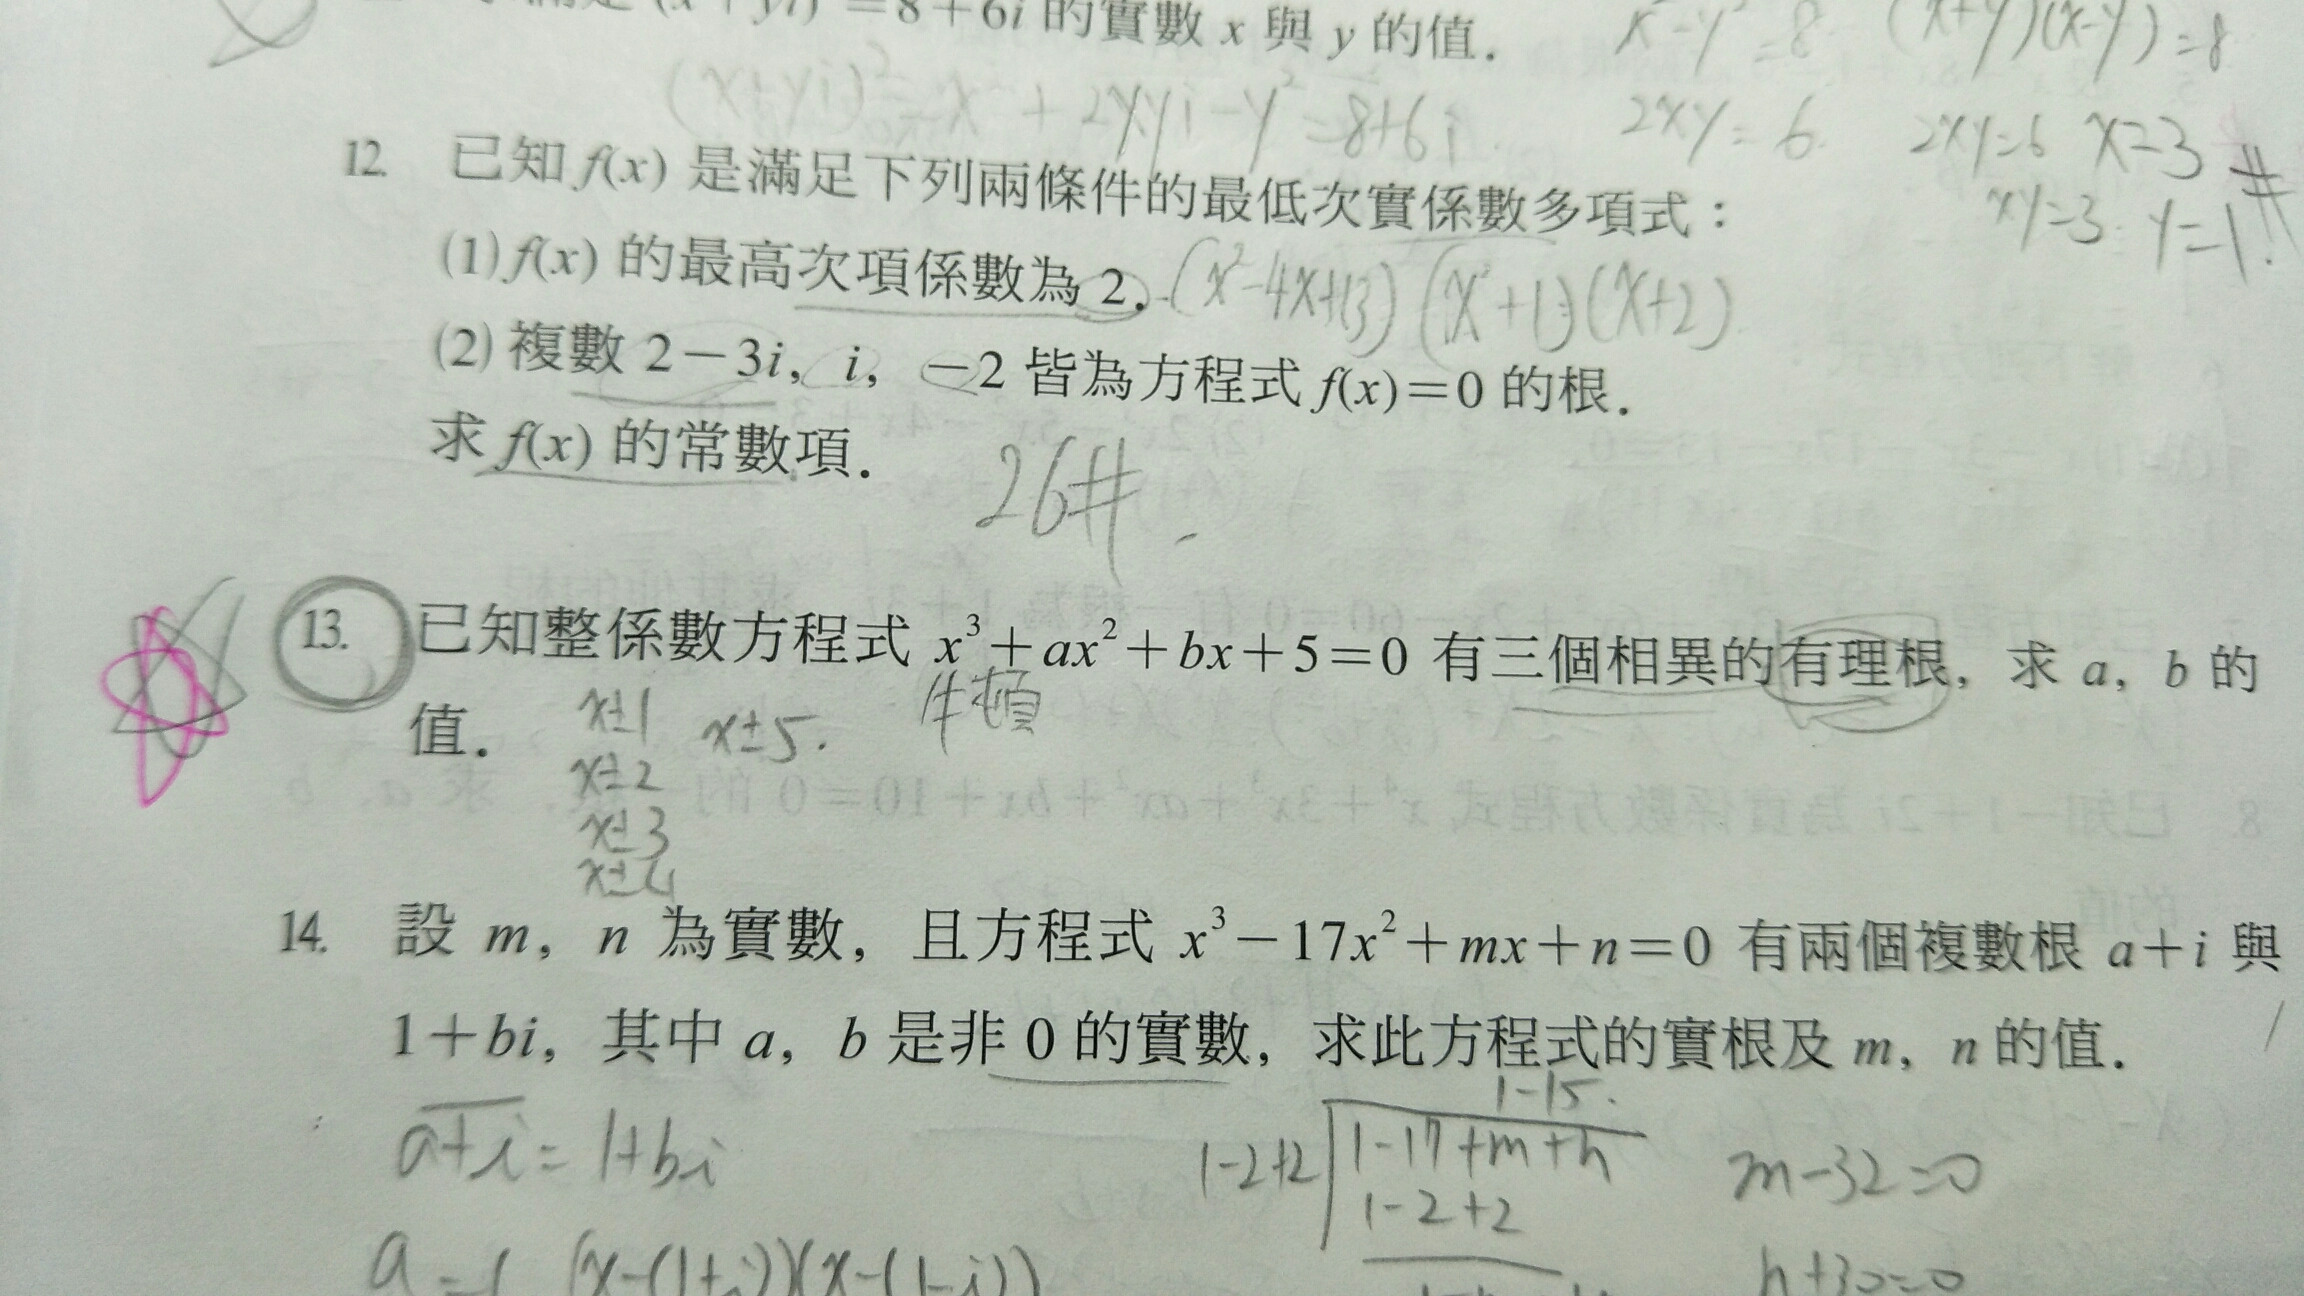 (x+yi)²=8+6i 的實數 x 與 y 的值.
x²-y²=8 (x+y)(x-y)=8
+2xyi-y²=8+6i
2xy=6 2xy=6 x=3
xy=3 y=1 #
12. 已知 f(x) 是滿足下列兩條件的最低次實係數多項式：
(1) f(x) 的最高次項係數為 2. (x²-4x+13)(x²+1)(x+2)
(2) 複數 2-3i, i, -2 皆為方程式 f(x)=0 的根.
求 f(x) 的常數項.
26#
13. 已知整係數方程式 x³+ax²+bx+5=0 有三個相異的有理根, 求 a, b 的
值.
牛頓
x±1 x±5.
x±2
x±3
x±4
14. 設 m, n 為實數, 且方程式 x³-17x²+mx+n=0 有兩個複數根 a+i 與
1+bi, 其中 a, b 是非 0 的實數, 求此方程式的實根及 m, n 的值.
1-15.
a+i=1+bi
1-2+2 1-17+m+n m-32=0
1-2+2
a=1 (x-(1+i))(x-(1-i))
n+30=0